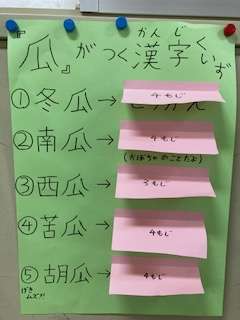 『瓜』がつく漢字くいず
かんじ
①冬瓜→ 4もじ
②南瓜→ 4もじ
(かぼちゃのことだよ)
③西瓜→ 3もじ
④苦瓜→ 4もじ
⑤胡瓜→ 4もじ
げき
ムズ!!